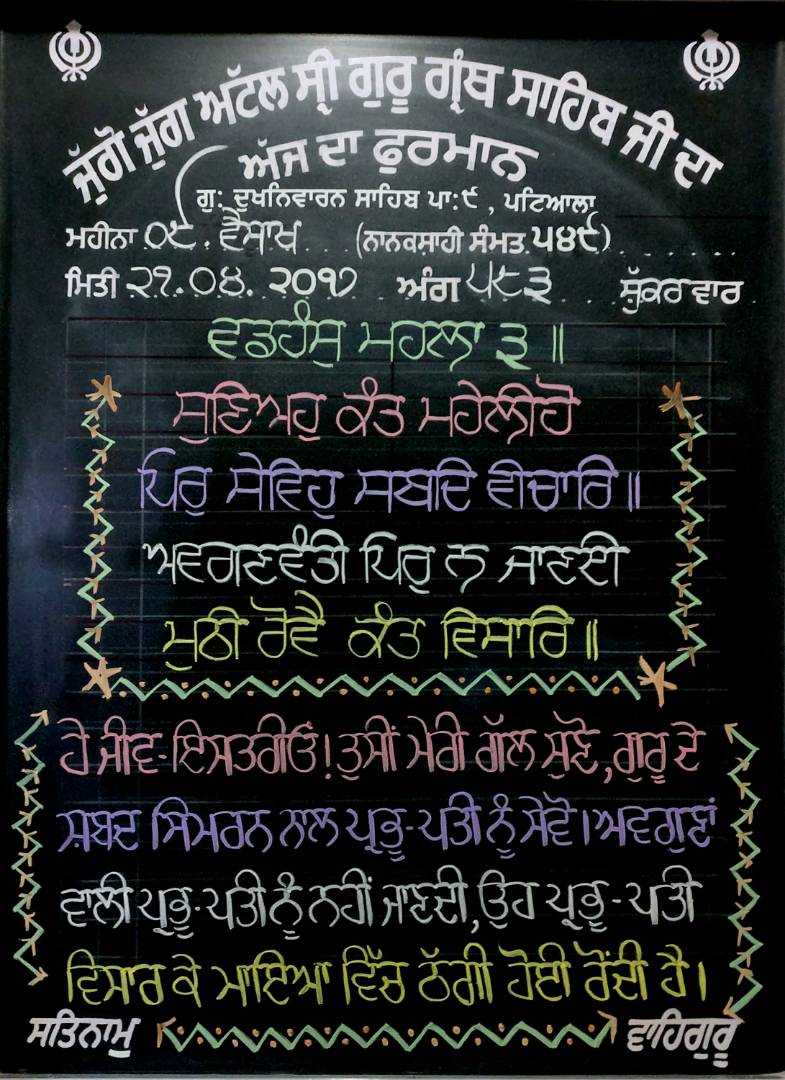 ਜੁੱਗੋ ਜੁੱਗ ਅਟੱਲ ਸ੍ਰੀ ਗੁਰੂ ਗ੍ਰੰਥ ਸਾਹਿਬ ਜੀ ਦਾ
ਅੱਜ ਦਾ ਫੁਰਮਾਨ
ਗੁ: ਦੁਖਨਿਵਾਰਨ ਸਾਹਿਬ ਪਾ:੯ , ਪਟਿਆਲਾ
ਮਹੀਨਾ ੦੯. ਵੈਸਾਖ (ਨਾਨਕਸ਼ਾਹੀ ਸੰਮਤ ੫੪੯)
ਮਿਤੀ ੨੧.੦੪.੨੦੧੭ ਅੰਗ ੫੬੩ ਸ਼ੁੱਕਰ ਵਾਰ
ਵਡਹੰਸੁ ਮਹਲਾ ੩ ॥
ਸੁਣਿਅਹੁ ਕੰਤ ਮਹੇਲੀਹੋ
ਪਿਰੁ ਸੇਵਿਹੁ ਸਬਦਿ ਵੀਚਾਰਿ ॥
ਅਵਗਣਵੰਤੀ ਪਿਰੁ ਨ ਜਾਣਈ
ਮੁਠੀ ਰੋਵੈ ਕੰਤ ਵਿਸਾਰਿ ॥
ਹੇ ਜੀਵ-ਇਸਤਰੀਓ! ਤੁਸੀਂ ਮੇਰੀ ਗੱਲ ਸੁਣੋ, ਗੁਰੂ ਦੇ
ਸ਼ਬਦ ਸਿਮਰਨ ਨਾਲ ਪ੍ਰਭੂ-ਪਤੀ ਨੂੰ ਸੇਵੋ। ਅਵਗੁਣਾਂ
ਵਾਲੀ ਪ੍ਰਭੂ-ਪਤੀ ਨੂੰ ਨਹੀਂ ਜਾਣਦੀ, ਉਹ ਪ੍ਰਭੂ-ਪਤੀ
ਵਿਸਾਰ ਕੇ ਮਾਇਆ ਵਿੱਚ ਠੱਗੀ ਹੋਈ ਰੋਂਦੀ ਹੈ।
ਸਤਿਨਾਮੁ ਵਾਹਿਗੁਰੂ